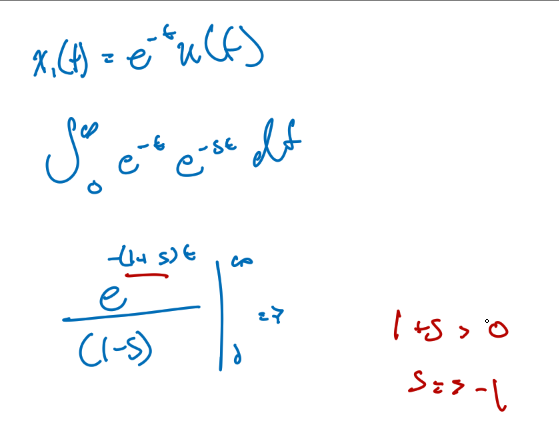 x₁(t) = e^{-t} u(t)
∫₀^∞ e^{-t} e^{-st} dt
e^{-(1+s)t} / (1-s) |₀^∞ =>
1+s > 0
s => -1